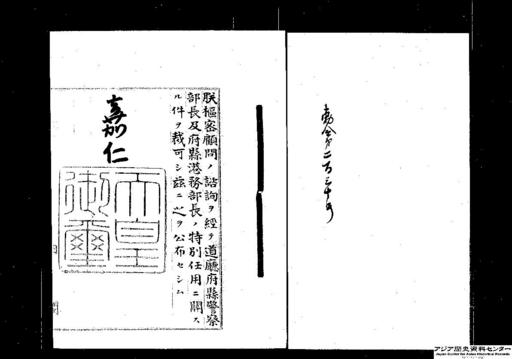 勅令第二百三十号
朕樞密顧問ノ諮詢ヲ經テ道廳府縣警察
部長及府縣港務部長ノ特別任用ニ關ス
ル件ヲ裁可シ茲ニ之ヲ公布セシム
嘉仁
天皇
御璽
アジア歴史資料センター
Japan Center for Asian Historical Records